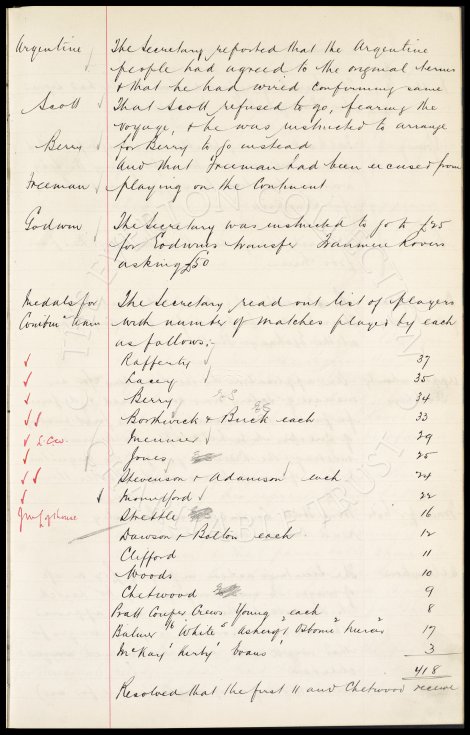 Argentine The Secretary reported that the Argentine
people had agreed to the original terms
& that he had wired confirming same
Scott That Scott refused to go, fearing the
voyage, & he was instructed to arrange
Berry for Berry to go instead
And that Freeman had been excused from
Freeman playing on the Continent
Godwin The Secretary was instructed to go to £25
for Godwins transfer Tranmere Rovers
asking £50
Medals for The Secretary read out list of players
Combin Team with number of matches played by each
as follows:-
Rafferty 37
Lacey 35
Berry 34
Borthwick & Buck each 33
Meunier 29
Jones 25
Stevenson & Adamson each 24
Mountford 22
Strettle 16
Dawson & Bolton each 12
Clifford 11
Woods 10
Chetwood 9
Pratt Couper Crews Young each 8
Balmer White Osborne 17
McKay Kirby Evans 3
418
Resolved that the first 11 and Chetwood receive